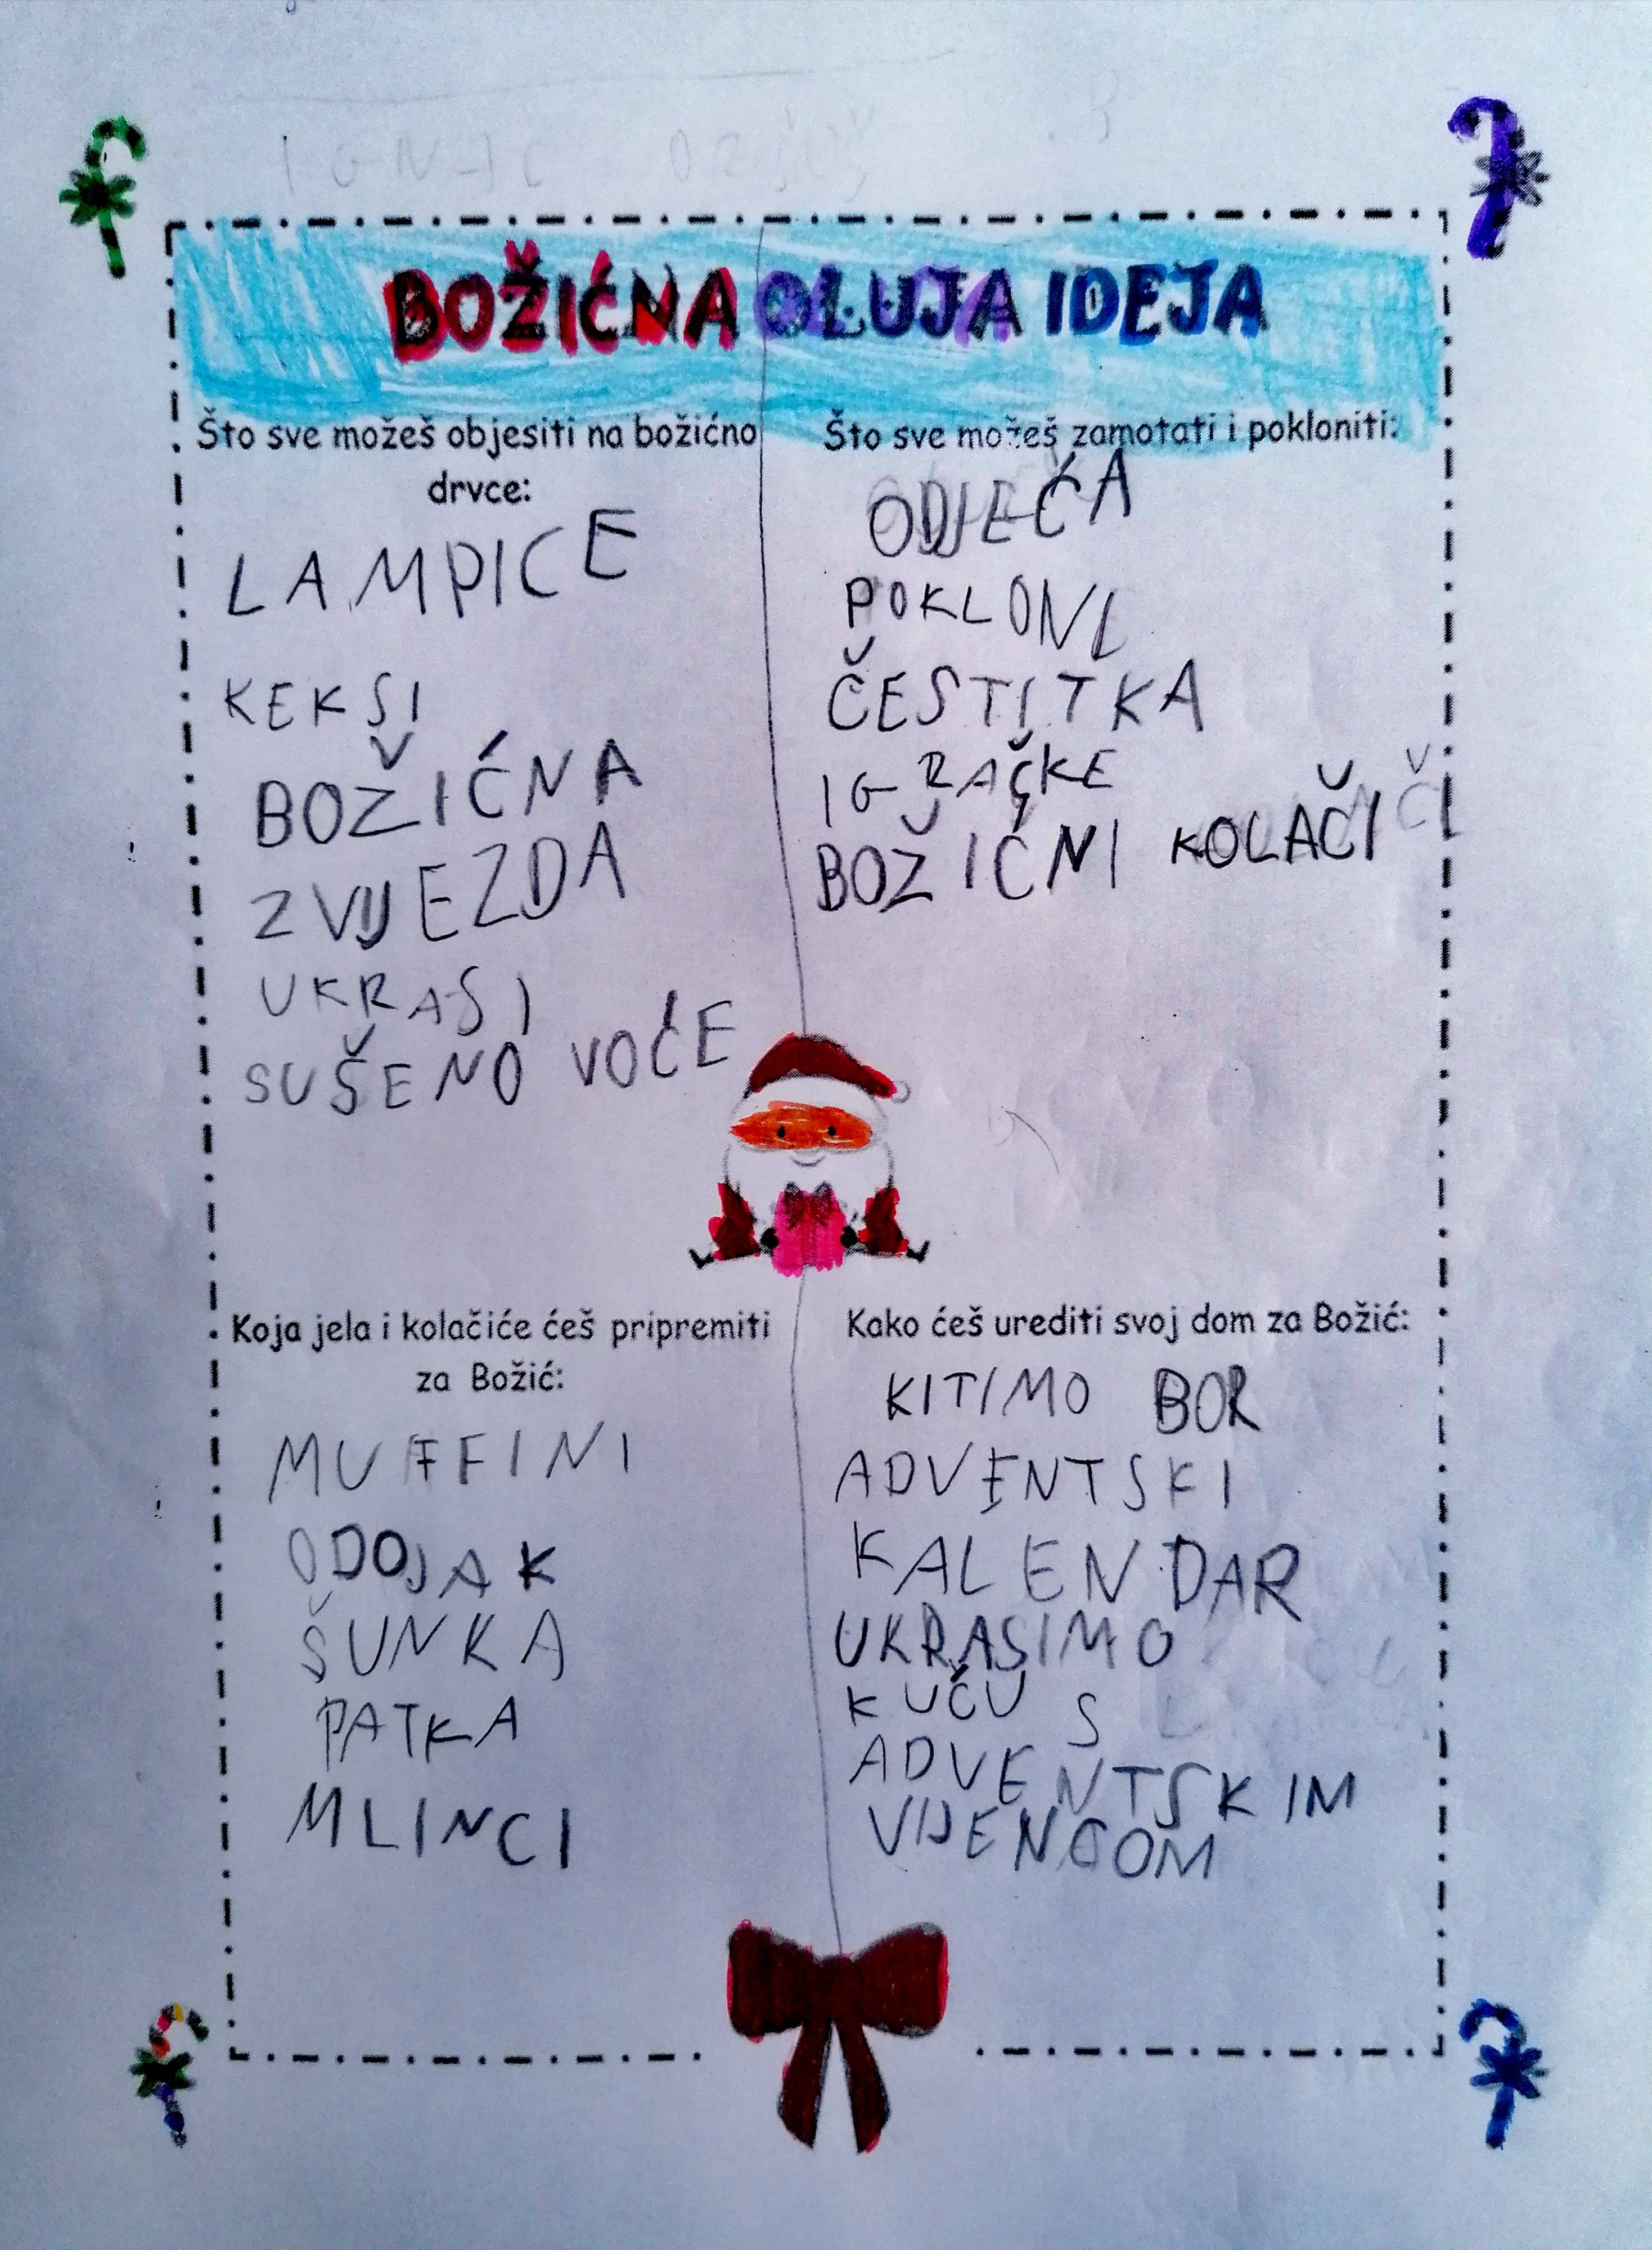 BOŽIĆNA OLUJA IDEJA
Što sve možeš objesiti na božićno
drvce:
LAMPICE
KEKSI
BOŽIĆNA
ZVIJEZDA
UKRASI
SUŠENO VOĆE
Što sve možeš zamotati i pokloniti:
ODJEĆA
POKLONI
ČESTITKA
IGRAČKE
BOŽIĆNI KOLAČI
Koja jela i kolačiće ćeš pripremiti
za Božić:
MUFFINI
ODOJAK
ŠUNKA
PATKA
MLINCI
Kako ćeš urediti svoj dom za Božić:
KITIMO BOR
ADVENTSKI
KALENDAR
UKRASIMO
KUĆU S
ADVENTSKIM
VIJENCOM